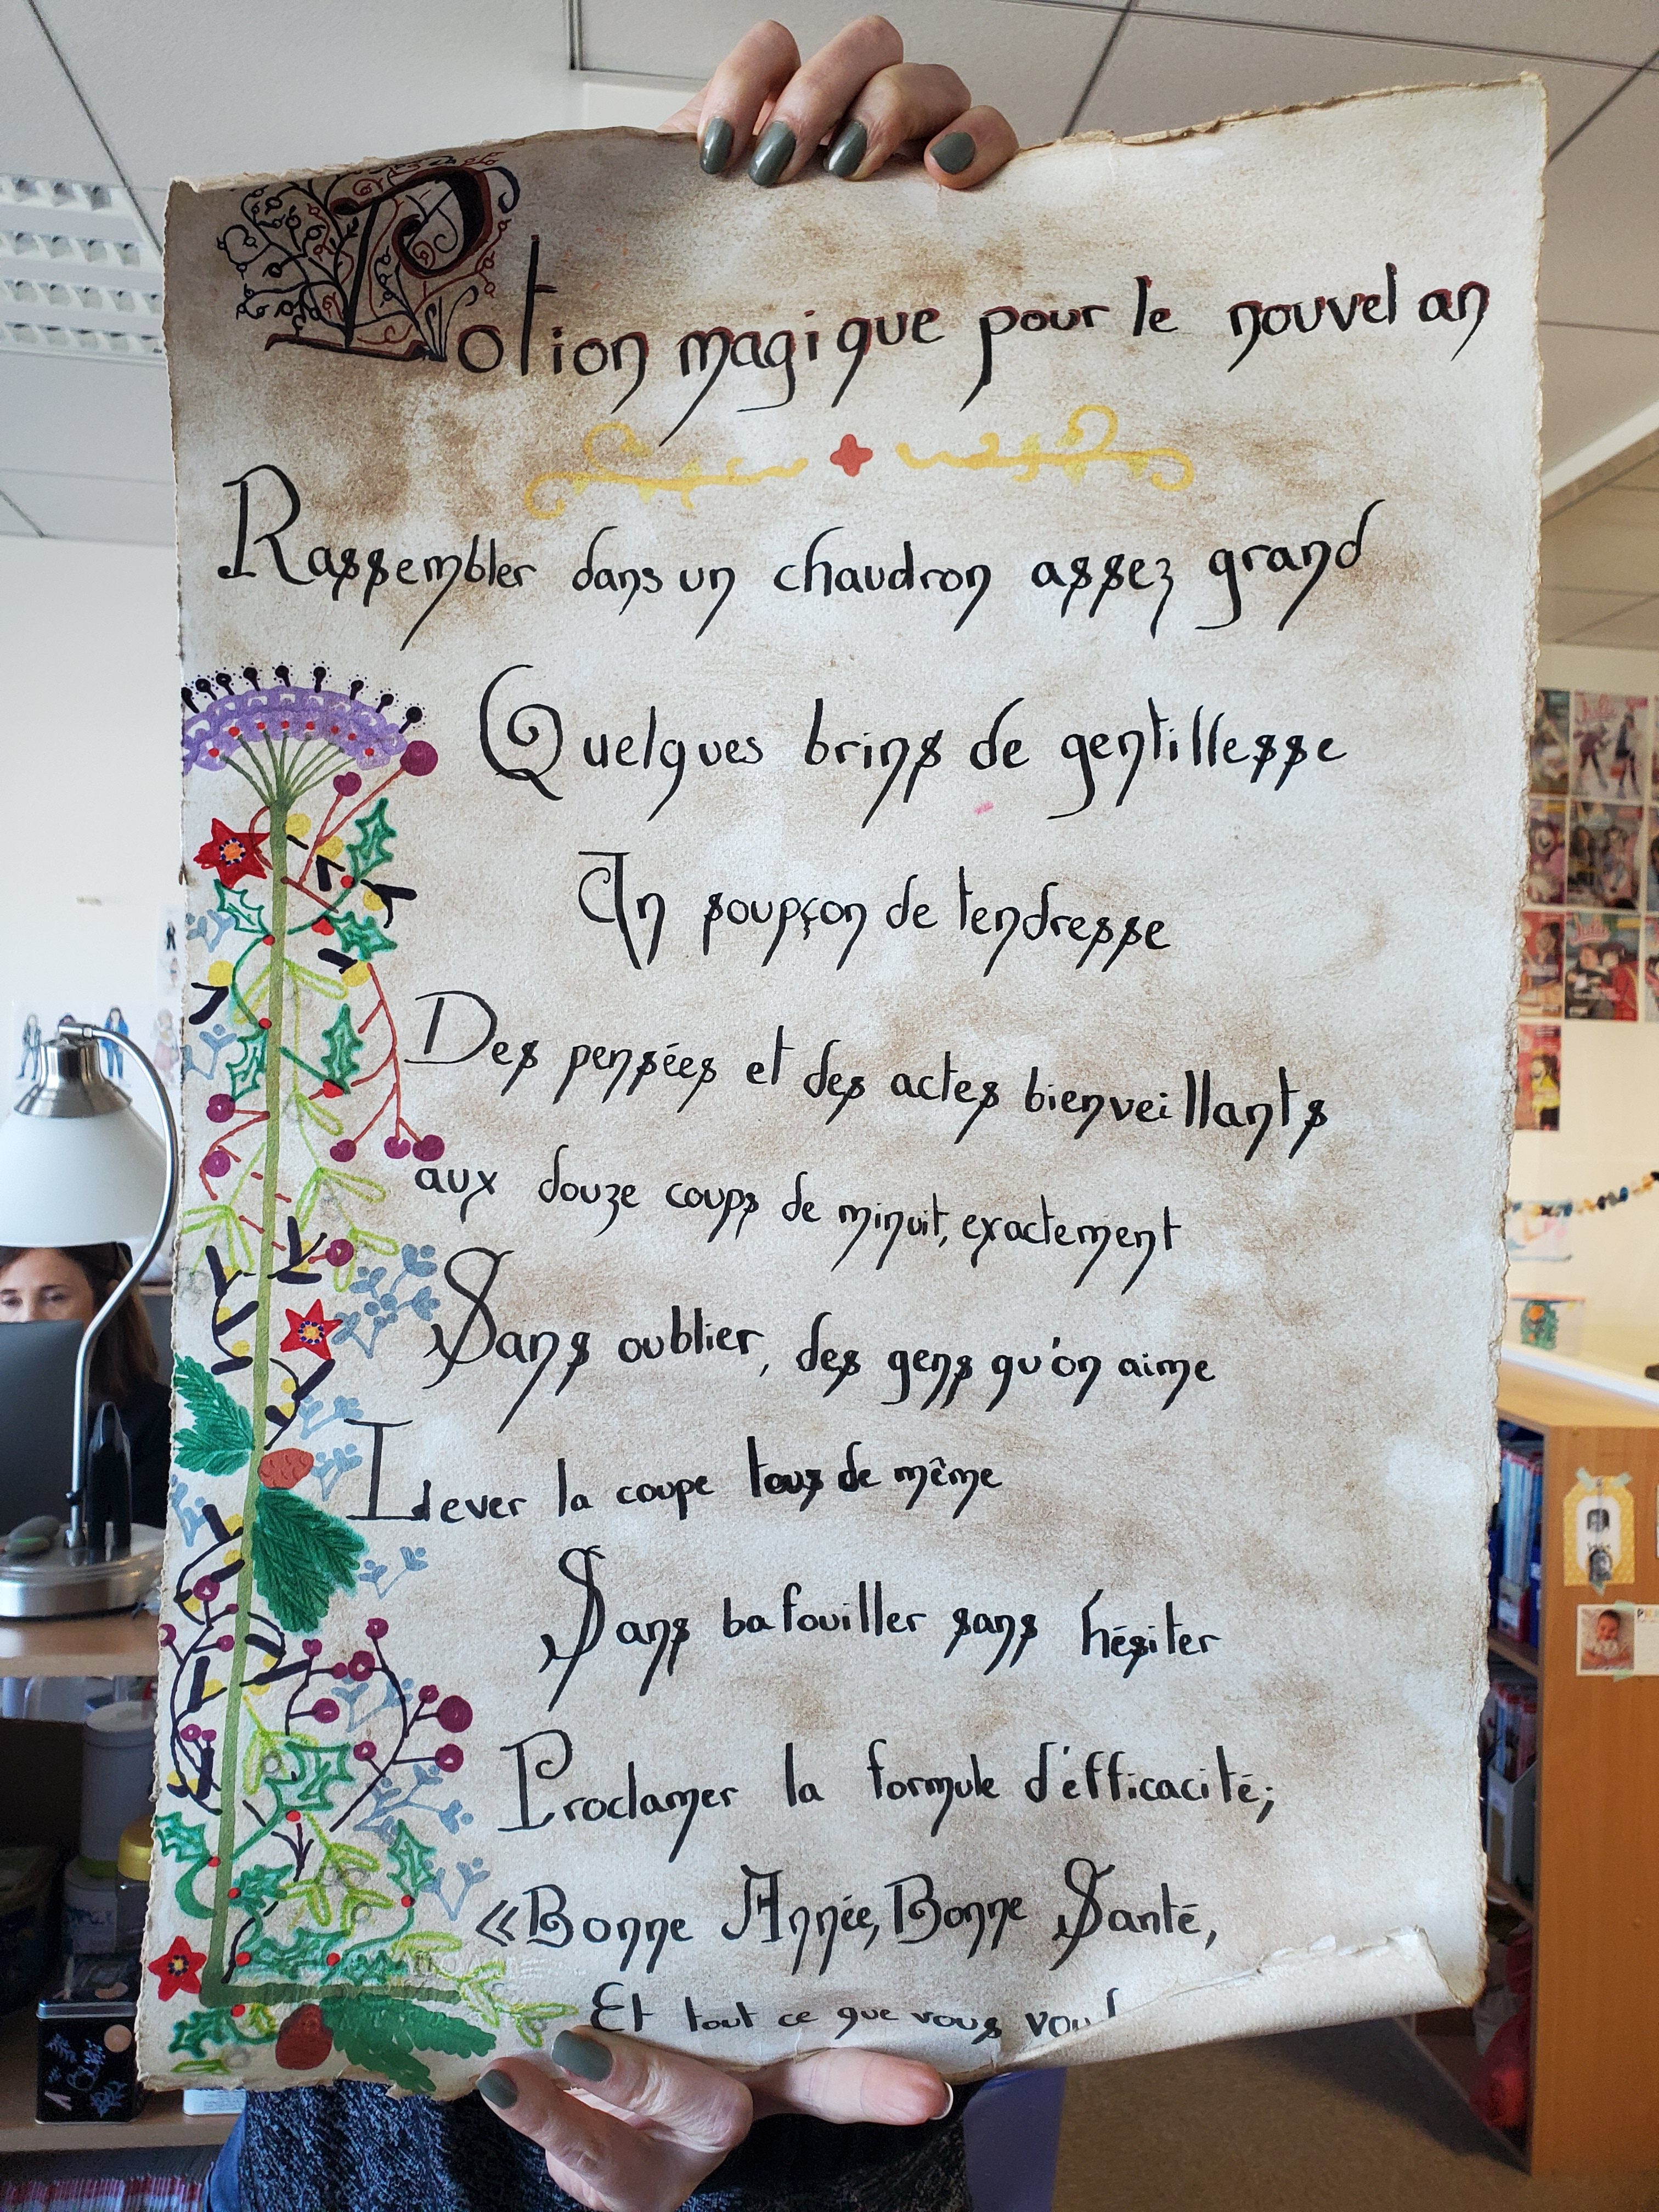 Potion magique pour le nouvel an
Rassembler dans un chaudron assez grand
Quelques brins de gentillesse
Un soupçon de tendresse
Des pensées et des actes bienveillants
aux douze coups de minuit, exactement
Sans oublier, des gens qu'on aime
Lever la coupe tous de même
Sans bafouiller sans hésiter
Proclamer la formule d'éfficacité;
«Bonne Année, Bonne Santé,
Et tout ce que vous